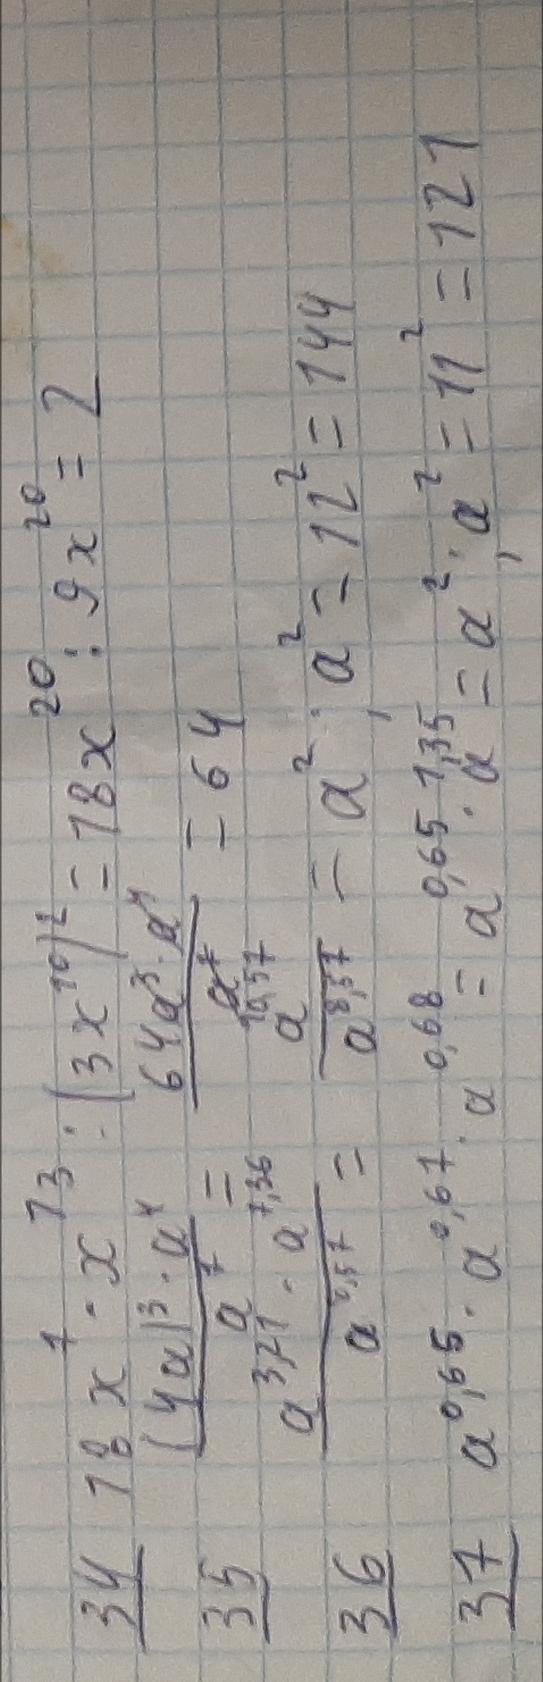 34 18x⁷ · x¹³ : (3x¹⁰)² = 18x²⁰ : 9x²⁰ = 2
35 (4a)³ · a⁴ / a⁷ = 64a³ · a⁴ / a⁷ = 64
36 a³,²¹ · a⁷,³⁶ / a⁸,⁵⁷ = a¹⁰,⁵⁷ / a⁸,⁵⁷ = a²; a² = 12² = 144
37 a⁰,⁶⁵ · a⁰,⁶⁷ · a⁰,⁶⁸ = a⁰,⁶⁵ · a¹,³⁵ = a²; a² = 11² = 121